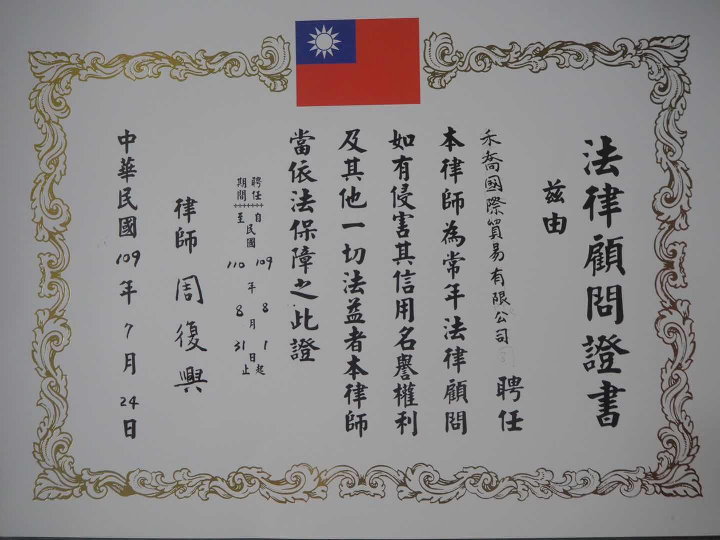 法律顧問證書
茲由
禾喬國際貿易有限公司 聘任
本律師為常年法律顧問
如有侵害其信用名譽權利
及其他一切法益者本律師
當依法保障之此證
聘任期間
自民國109年8月1日起
至110年8月31日止
律師 周復興
中華民國109年7月24日